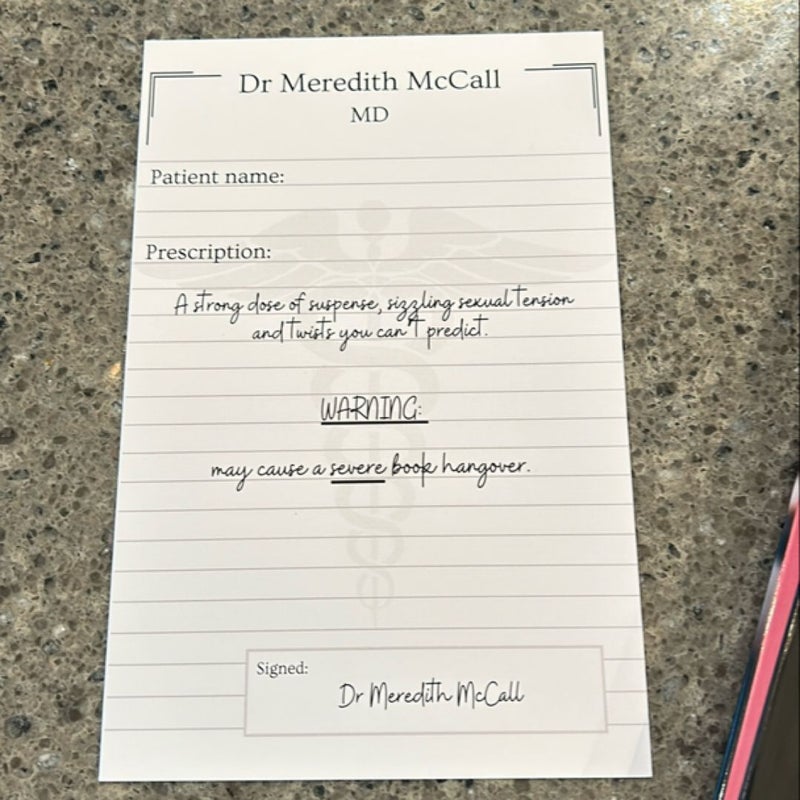 Dr Meredith McCall
MD
Patient name:
Prescription:
A strong dose of suspense, sizzling sexual tension
and twists you can't predict.
WARNING:
may cause a severe book hangover.
Signed:
Dr Meredith McCall